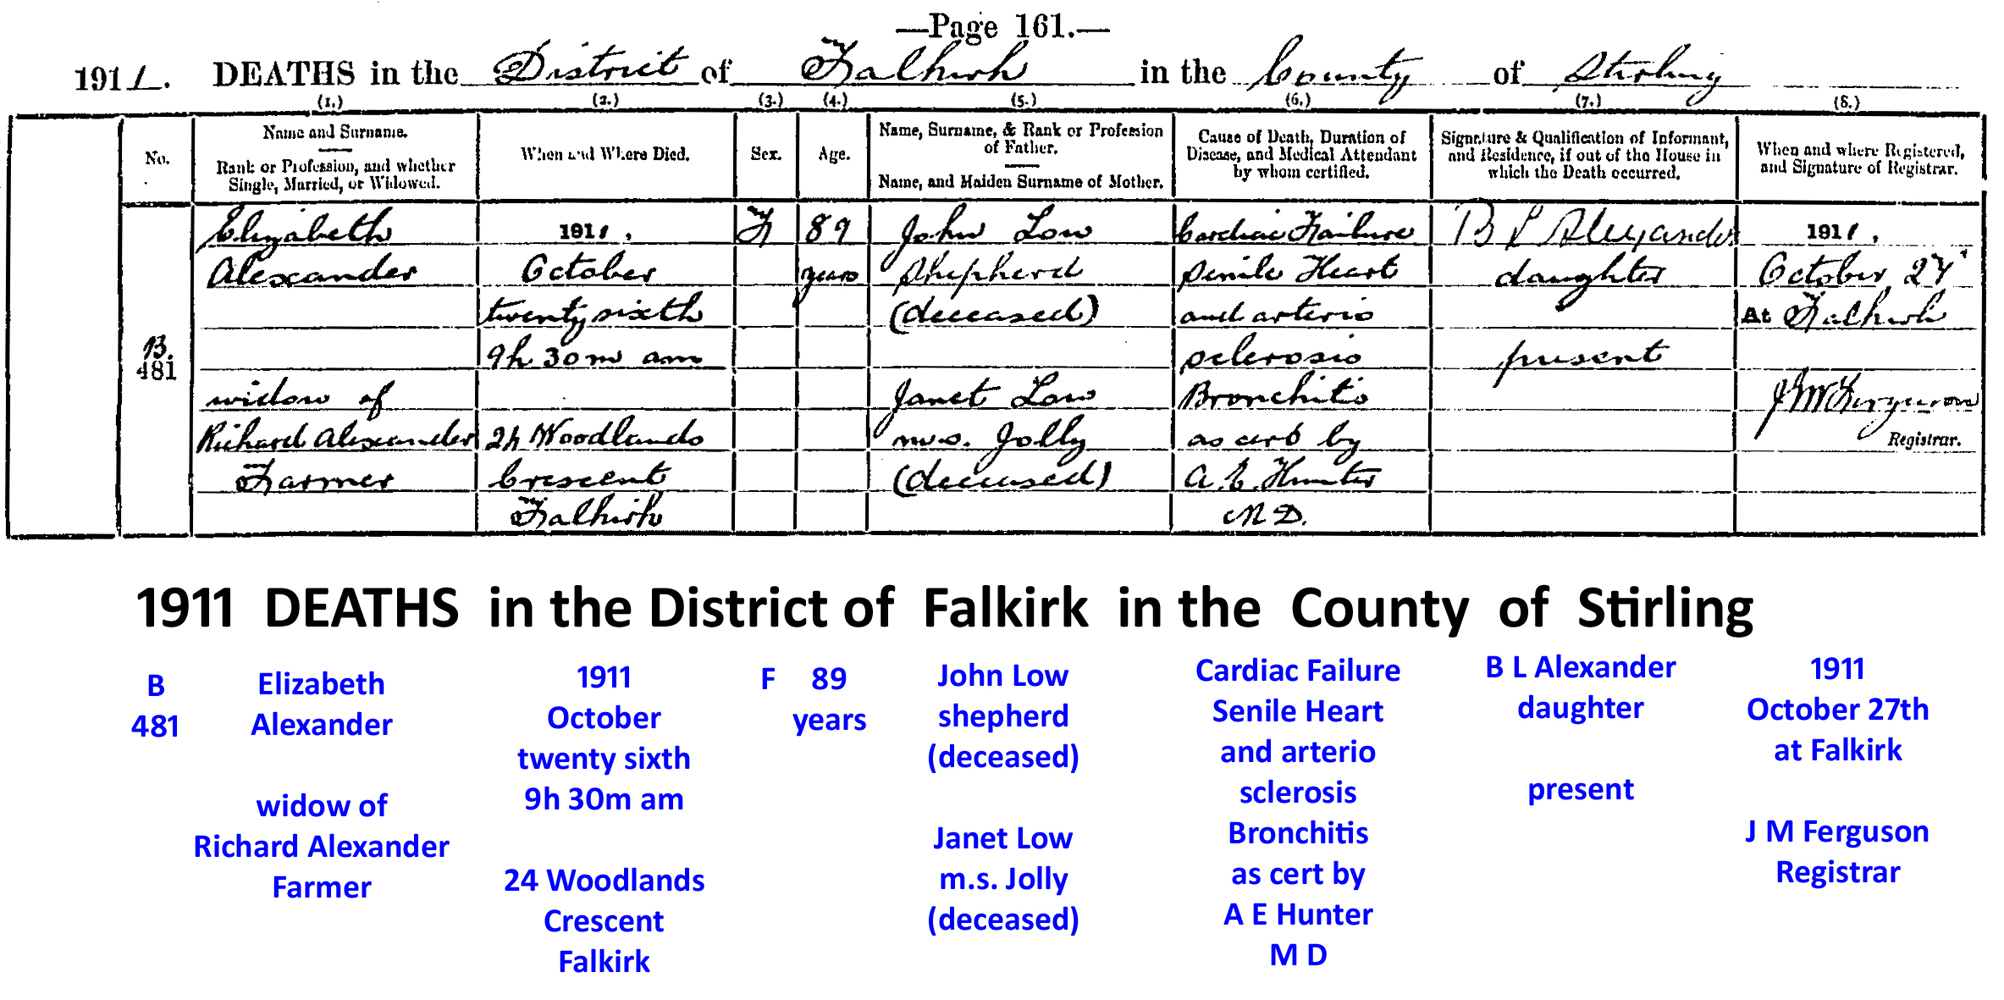 —Page 161.—
1911. DEATHS in the District of Falkirk in the County of Stirling
(1.) (2.) (3.) (4.) (5.) (6.) (7.) (8.)
No.
Name and Surname.
Rank or Profession, and whether
Single, Married, or Widowed.
When and Where Died.
Sex.
Age.
Name, Surname, & Rank or Profession
of Father.
Name, and Maiden Surname of Mother.
Cause of Death, Duration of
Disease, and Medical Attendant
by whom certified.
Signature & Qualification of Informant,
and Residence, if out of the House in
which the Death occurred.
When and where Registered,
and Signature of Registrar.
B.
481
Elizabeth
Alexander
widow of
Richard Alexander
Farmer
1911.
October
twenty sixth
9h 30m am
24 Woodlands
Crescent
Falkirk
F
89
years
John Low
Shepherd
(deceased)
Janet Low
m.s. Jolly
(deceased)
Cardiac Failure
Senile Heart
and arterio
sclerosis
Bronchitis
as cert by
A. E. Hunter
M D.
B L Alexander
daughter
present
1911.
October 27
At Falkirk
J M Ferguson
Registrar.
1911 DEATHS in the District of Falkirk in the County of Stirling
B
481
Elizabeth
Alexander
widow of
Richard Alexander
Farmer
1911
October
twenty sixth
9h 30m am
24 Woodlands
Crescent
Falkirk
F
89
years
John Low
shepherd
(deceased)
Janet Low
m.s. Jolly
(deceased)
Cardiac Failure
Senile Heart
and arterio
sclerosis
Bronchitis
as cert by
A E Hunter
M D
B L Alexander
daughter
present
1911
October 27th
at Falkirk
J M Ferguson
Registrar